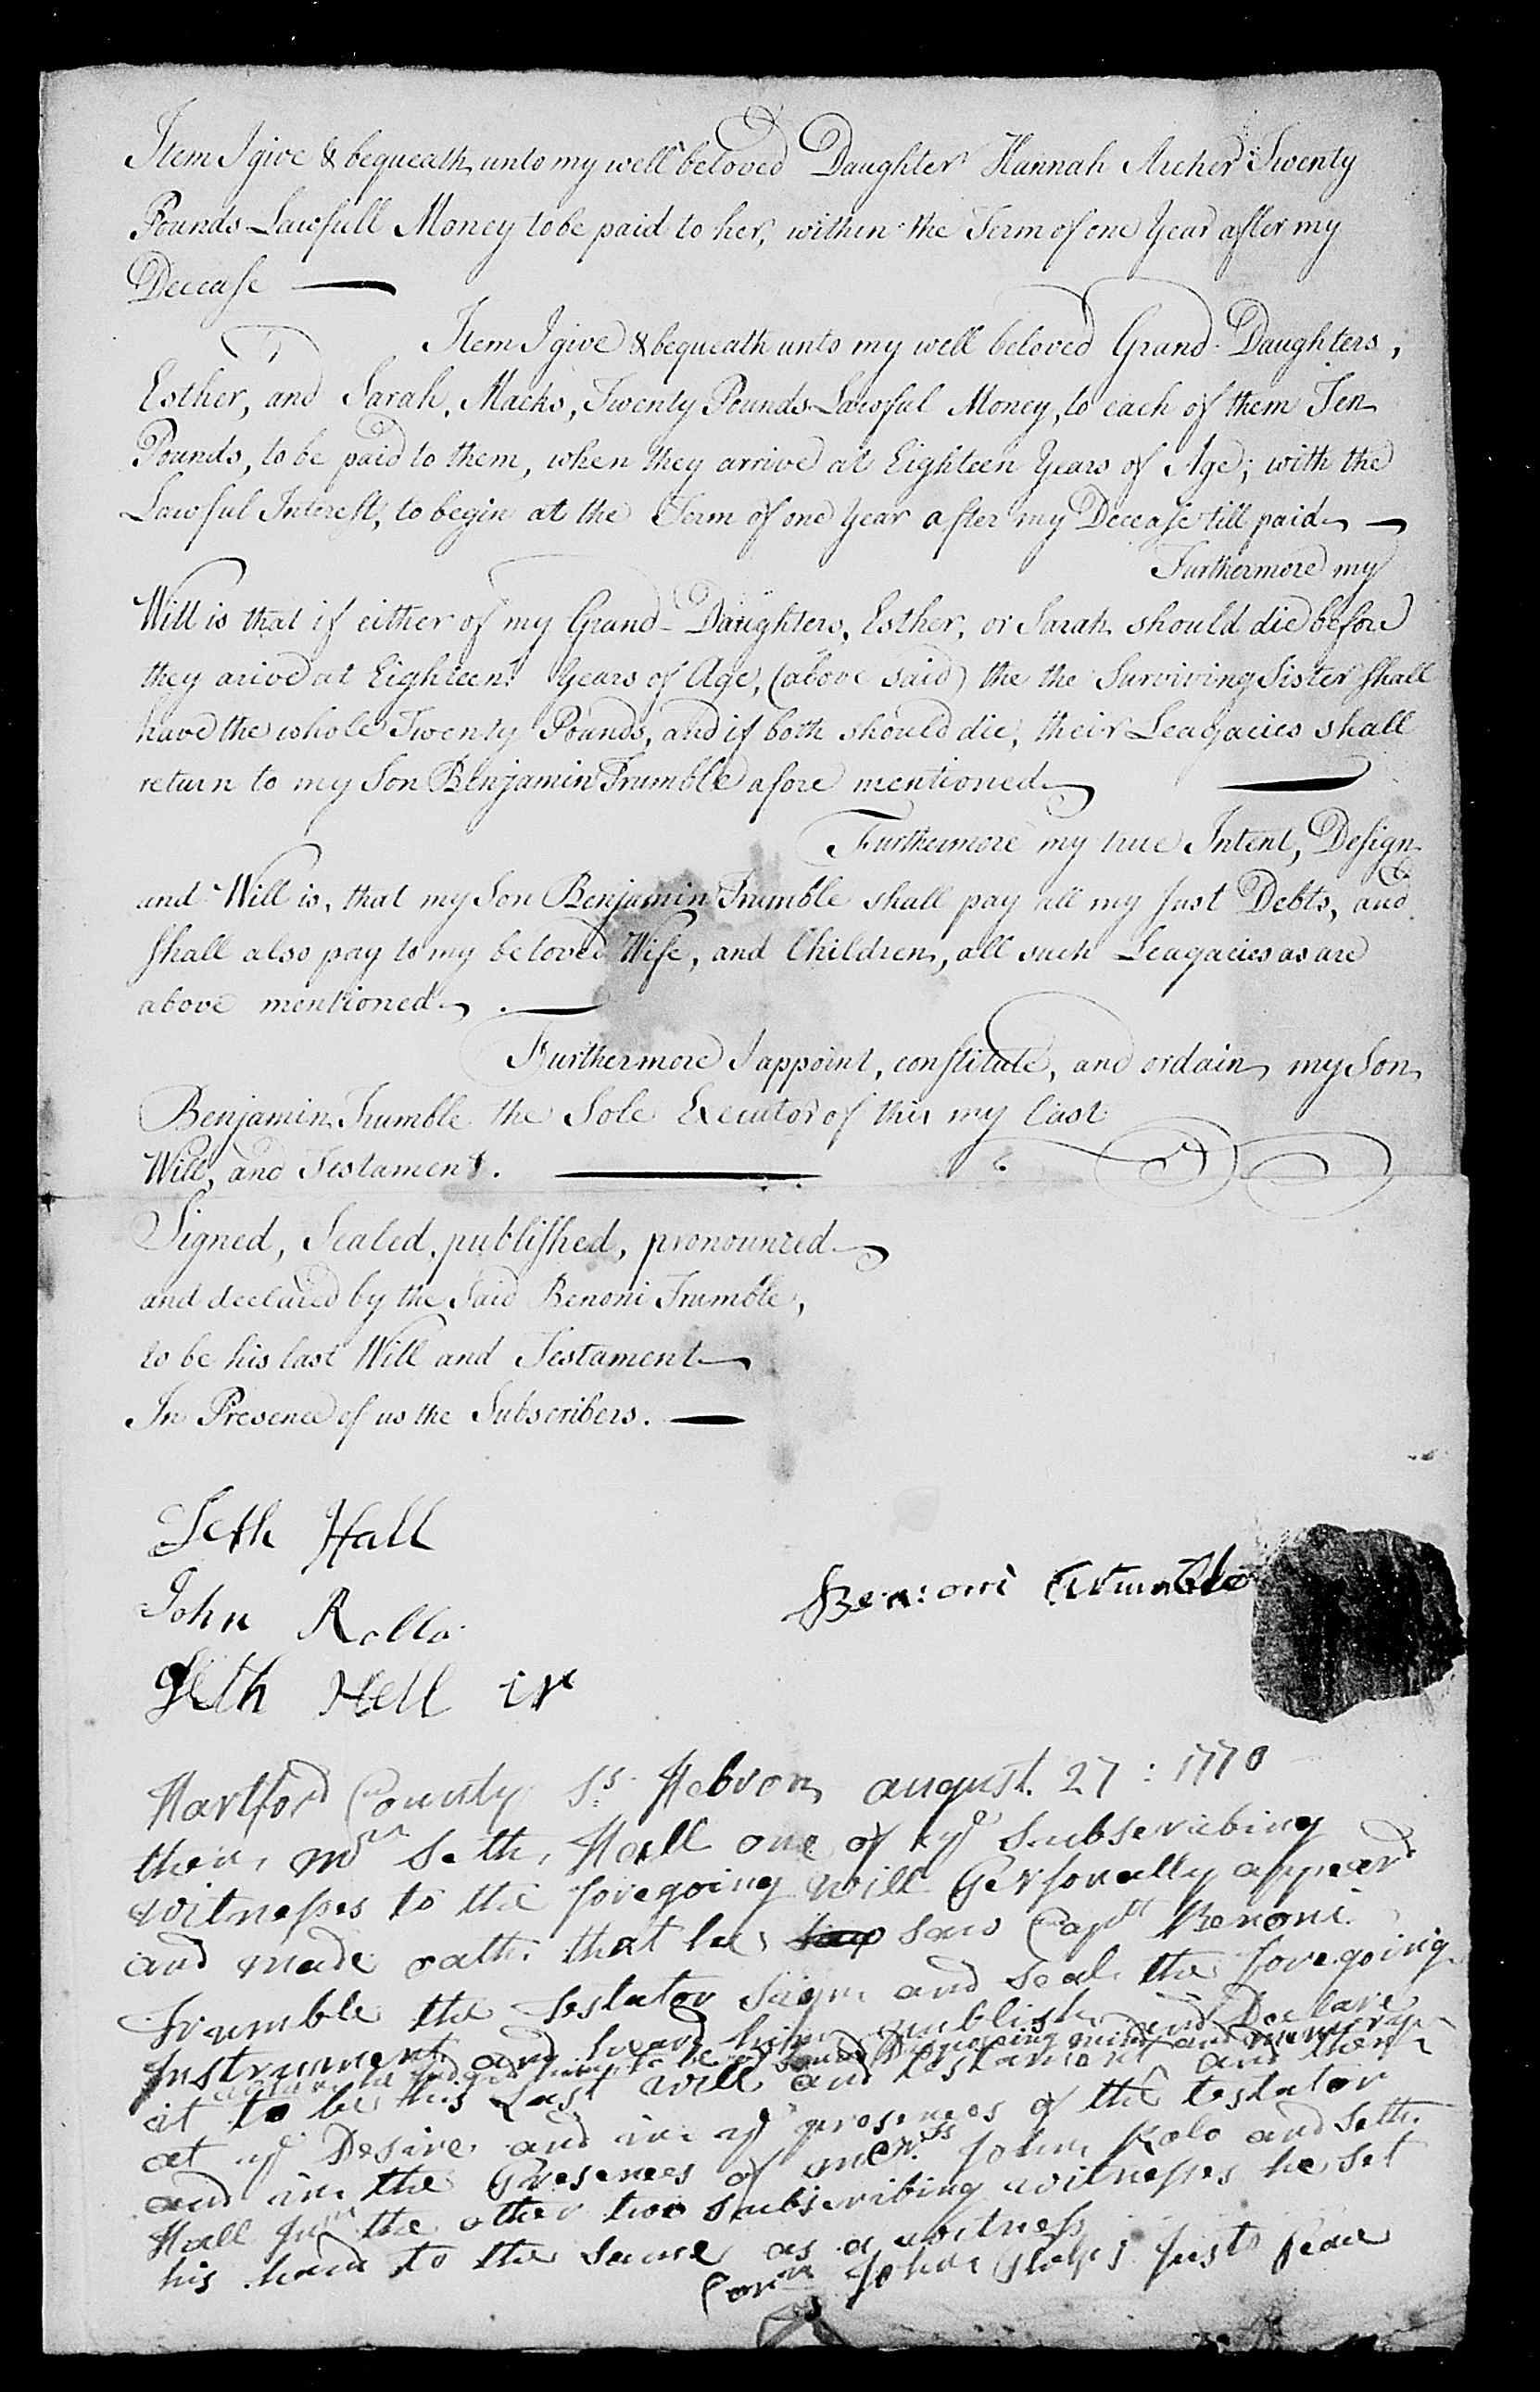 Item I give & bequeath unto my well beloved Daughter Hannah Archer Twenty
Pounds Lawfull Money to be paid to her, within the Term of one Year after my
Decease —
Item I give & bequeath unto my well beloved Grand-Daughters,
Esther, and Sarah, Macks, Twenty Pounds Lawful Money, to each of them Ten
Pounds, to be paid to them, when they arrive at Eighteen Years of Age; with the
Lawful Interest, to begin at the Term of one Year after my Decease till paid —
Furthermore my
Will is that if either of my Grand-Daughters, Esther, or Sarah should die before
they arive at Eighteen Years of Age, (above said) the the Surviving Sister shall
have the whole Twenty Pounds, and if both should die, their Leagacies shall
return to my Son Benjamin Trumble afore mentioned —
Furthermore my true Intent, Design
and Will is, that my Son Benjamin Trumble shall pay all my just Debts, and
shall also pay to my beloved Wife, and Children, all such Leagacies as are
above mentioned. —
Furthermore I appoint, constitute, and ordain my Son
Benjamin Trumble the Sole Executor of this my last
Will, and Testament. —
Signed, Sealed, published, pronounced
and declared by the Said Benoni Trumble,
to be his last Will and Testament
In Presence of us the Subscribers. —
Seth Hall
John Rollo
Benoni Trumble
Seth Hall ir
Hartford County Ss. Hebron august. 27 : 1770
then mr Seth Hall one of ye Subscribing
witnesses to the foregoing will Personally appeard
and made oath that he saw Capt Benoni
Trumble the testator Sign and Seal the foregoing
Instrument and heard him publish and Declare
to be of Sound Disposing mind and memory
it to be his Last will and testament and then
at ye Desire and in ye presences of the testator
and in the Presences of mesrs John Rolo and Seth
Hall Junr the other two Subscribing witnesses he set
his hand to the same as a witness
Corm John Phelps Just Peace